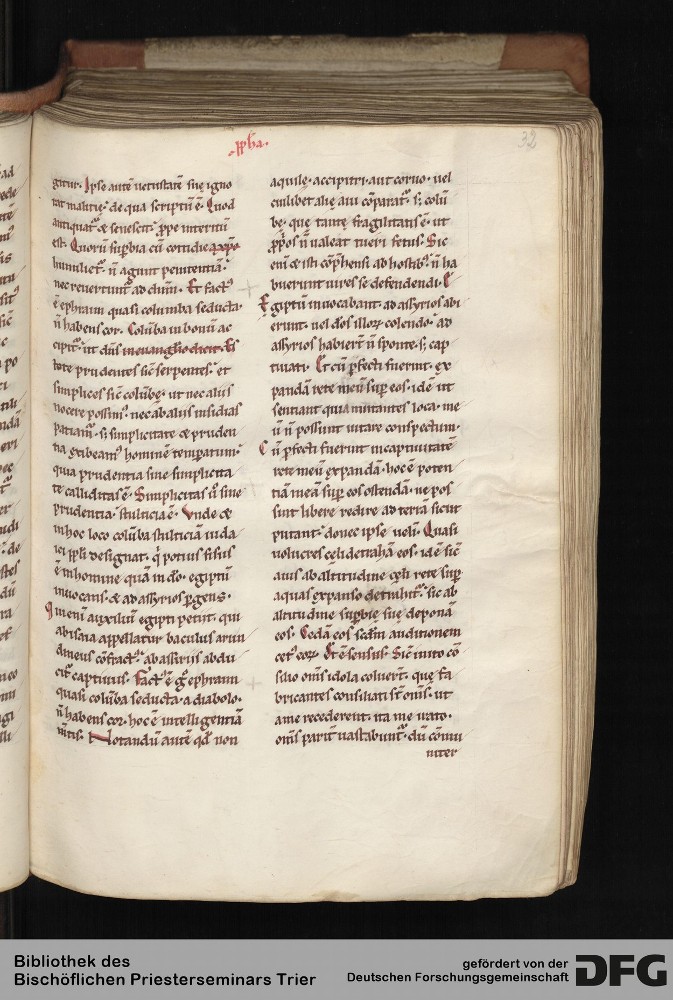 .ꝓph̄a.
32
gitur. Ipse autē uetustatē suę igno
rat malitię. de qua scriptū ē. Quod
antiquat᷑ & senescit. ꝓpe interitū
est. Quorū suꝑbia cū cottidie
humiliet᷑. ñ agunt penitentiā.
nec reuertunt᷑ ad dñm. Et fact᷒
ē ephraim quasi columba seducta.
ñ habens cor. Colūba in bonū ac
cipit᷑. ut dñs in euanglio dicit. Es
tote prudentes sic̄ serpentes. et
simplices sic̄ colūbę. ut nec aliis
nocere possim᷒. nec ab aliis insidias
patiam᷑. s; simplicitate & pruden
tia exibeam᷒ hominē temperatum.
quia prudentia sine simplicita
te calliditas ē. Simplicitas ū sine
prudentia. stulticia ē. Vnde &
in hoc loco colūba stulticiā iuda
ici ppl̄i designat. q̇ potius fisus
ē in homine quā in dō. egiptū
inuocans. & ad assyrios ꝑgens.
Qui enim auxiliū egipti petiit. qui
ab isaia appellatur baculus arun
dineus cōfract᷒. ab assiriis abdu
cit᷑ captiuus. Fact᷒ ē g̊ ephraim
quasi colūba seducta. a diabolo.
ñ habens cor. hoc ē intelligentiā
m̄tis. Notandū autē qđ non
aquilę. accipitri. aut coruo. uel
cuilibet alię aui cōparat᷑. s; colū
bę. quę tantę fragilitatis ē. ut
ꝓp̄os ñ ualeat tueri fetus. Sic
eni & isti cōp̄hensi. ab hostib᷒. ñ ha
buerunt uires se defendendi.
Egiptū inuocabant. ad assyrios abi
erunt. uel dōs illoꝝ colendo. ad
assyrios habier̄t ñ sponte. s; cap
tiuati. Et cū ꝓfecti fuerint. ex
pandā rete meū suꝑ eos. id ē ut
sentiant quia mutantes loca. me
ū ñ possunt uitare conspectum.
Cū ꝓfecti fuerint in captiuitatē
rete meū expandā. hoc ē poten
tiā meā suꝑ eos ostendā. ne pos
sint libere redire ad terrā sicut
putant. donec ipse uoli. Quasi
uolucres cęli detrahā eos. id ē sic̄
auis ab altitudine cęli rete suꝑ
aquas expanso detrahit᷑. sic ab
altitudine suꝑbię suę deponā
eos. Cedā eos scd̄m auditionem
cet᷒ eoꝝ. Et ē sensus. Sic̄ inito cō
silio om̄s idola coluer̄t. quę fa
bricantes consiliati st̄ om̄s. ut
a me recederent. ita me irato.
om̄s parit̄ uastabunt᷑. dū cōmu
niter
Bibliothek des
Bischöflichen Priesterseminars Trier
gefördert von der
Deutschen Forschungsgemeinschaft
DFG